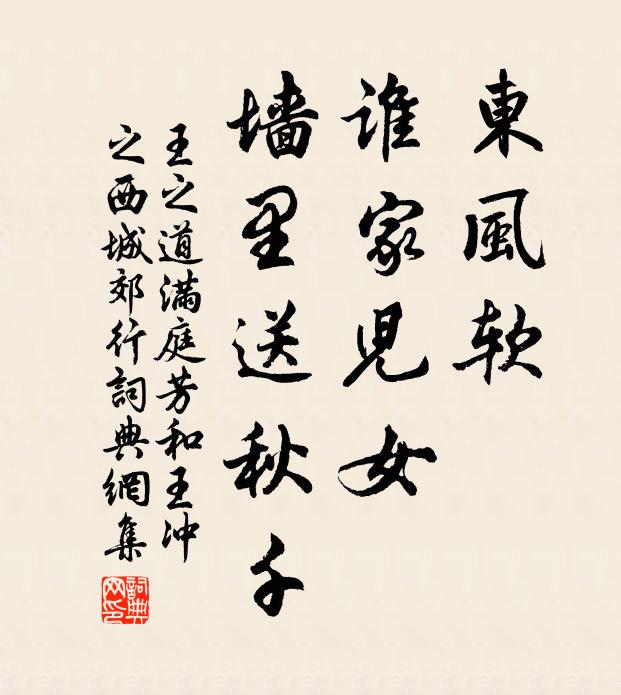 東風軟
谁家児女
墙里送秋千
王之道满庭芳和王冲
之西城郊行詞典網集
詞典網印